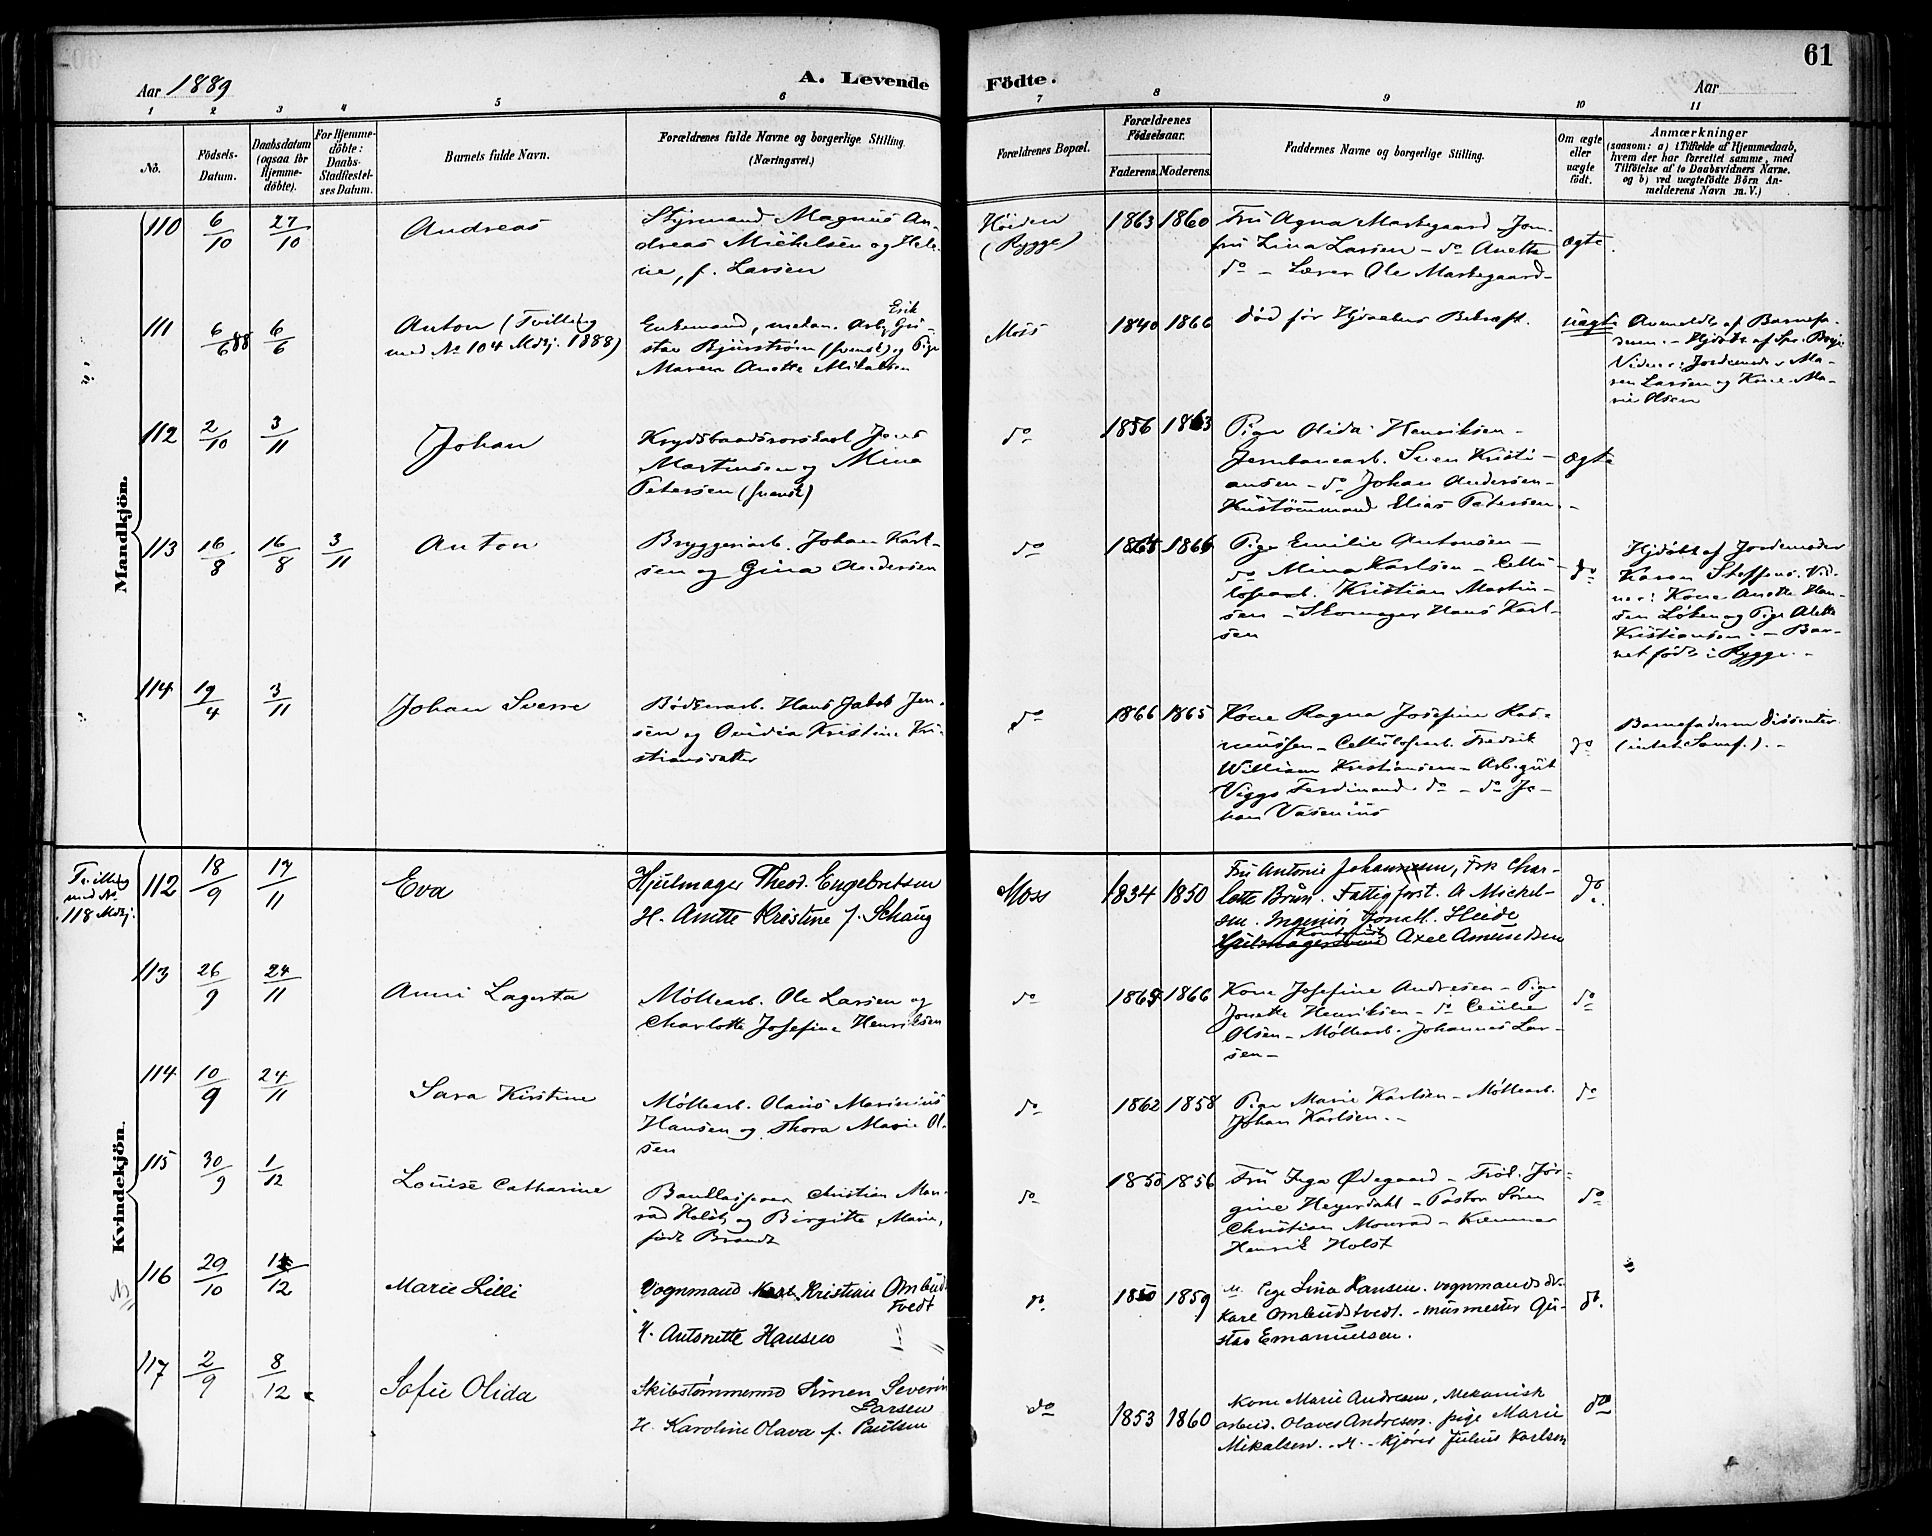 61
Aar 1889
A. Levende
Födte.
Aar
1 2 3 4 5 6 7 8 9 10 11
No.
Födsels-Datum.
Daabsdatum (ogsaa for Hjemme-döbte).
For Hjemme-döbte: Daabs-Stadfestel-ses Datum.
Barnets fulde Navn.
Forældrenes fulde Navne og borgerlige Stilling.
(Næringsvei.)
Forældrenes Bopæl.
Forældrenes Födselsaar.
Faderens. Moderens.
Faddernes Navne og borgerlige Stilling.
Om ægte eller uægte födt.
Anmærkninger
(saasom: a) i Tilfælde af Hjemmedaab,
hvem der har forrettet samme, med
Tilföielse af to Daabsvidners Navne.
og b) ved uægtefödte Börn An-
melderens Navn m. V.)
Mandkjön.
110 6/10 27/10
Andreas
Styrmand Magnus An-
dreas Michelsen og Hele-
ne, f. Larsen
Høien
(Rygge)
1863 1860
Fru Agna Markegaard – Jom-
fru Lina Larsen – do Anette
do – Lærer Ole Markegaard –
ægte.
111 6/6 88 6/6
Anton (Tvilling
med No 104 Mdkj. 1888)
Erik
Enkemand, mekan. Arb. Gu-
stav Bjurstrøm (svensk) og Pige
Maren Anette Mikalsen
Moss
1840 1866
Død før Hjdaabens Bekræft.
uægte
Anmeldt af Barnefa-
deren. – Hjdøbt af Spr. Brye.
Vidner: Jordemoder Ma-
ren Larsen og Kone Ma-
rie Olsen
112 2/10 3/11
Johan
Jens
Martinsen og Mina
Petersen (svensk)
do
1856 1863
Pige Olida Henriksen –
Jernbanearb. Sven Kristi-
ansen – do Johan Andersen –
Hustømmand Elias Petersen. –
ægte
113 16/8 16/8 3/11
Anton
Bryggeriarb. Johan Karl-
sen og Gina Andersen
do
1866
Pige Emilie Antonsen –
do Mina Karlsen – Cellu-
losearb. Kristian Martin-
sen – Skomager Hans Karl-
sen
do
Hjdøbt af Jordemoder
Karen Steffens. Vid-
ner: Kone Anette Han-
sen Løken og Pige Alette
Kristiansen. – Bar-
net født i Rygge. –
114 19/4 3/11
Johan Sverre
Bødkerarb. Hans Jakob Jen-
sen og Ovidia Kristine Kri-
stiansdatter
do
1866 1865
Kone Ragna Josefine Ras-
mussen – Cellulosearb. Fredrik
William Kristiansen – Arb.gut
Viggo Ferdinand do – do Jo-
han Vasenius
do
Barnefaderen Dissenter
(intet Samf.). –
Kvindekjön.
Tvilling
med No
118 Mdkj.
112 18/9 17/11
Eva
Hjulmager Theod. Engebretsen
H. Anette Kristine f. Schaug
Moss
1834 1850
Fru Antonie Johannesen, Frk Char-
lotte Brun. Fattigforst. A Michel-
sen. Ingeniør Heide
Axel Amundsen
do.
113 26/9 24/11
Anni Lagerta
Møllearb. Ole Larsen og
Charlotte Josefine Henriksen
do
1866
Kone Josefine Andresen – Pige
Jonette Henriksen – do Cecilie
Olsen – Møllearb. Johannes Lar-
sen –
do
114 10/9 24/11
Sara Kirstine
Møllearb. Olaus Marinius
Hansen og Thora Marie Ol-
sen
do
1862 1858
Pige Marie Karlsen – Møllearb.
Johan Karlsen. –
do
115 30/9 1/12
Louise Catharine
Bankkasserer Christian Mon-
rad Holst og Birgitte Marie,
født Brandt
do
1850 1856
Fru Inga Ødegaard – Frøk. Jør-
gine Heyerdahl – Pastor Søren
Christian Monrad – Kæmner
Henrik Holst
do
116 29/10 /12
Marie Lilli
Vognmand Karl Kristian Ombud-
tvedt
H. Antonette Hansen
do.
1850 1859
Pige Lina Hansen. vognmands dr.
Kaie Ombudstvedt. – murmester Gu-
stav Emanuelsen.
do.
117 2/9 8/12
Sofie Olida
Skibstømmermd Simen Severin
Larsen
H. Karoline Olava f. Paulsen
do
1853 1860
Kone Marie Andresen, Mekanisk
arbeid. Olaves Andresen. pige Marie
Mikalsen. – Kjører Julius Karlson
do